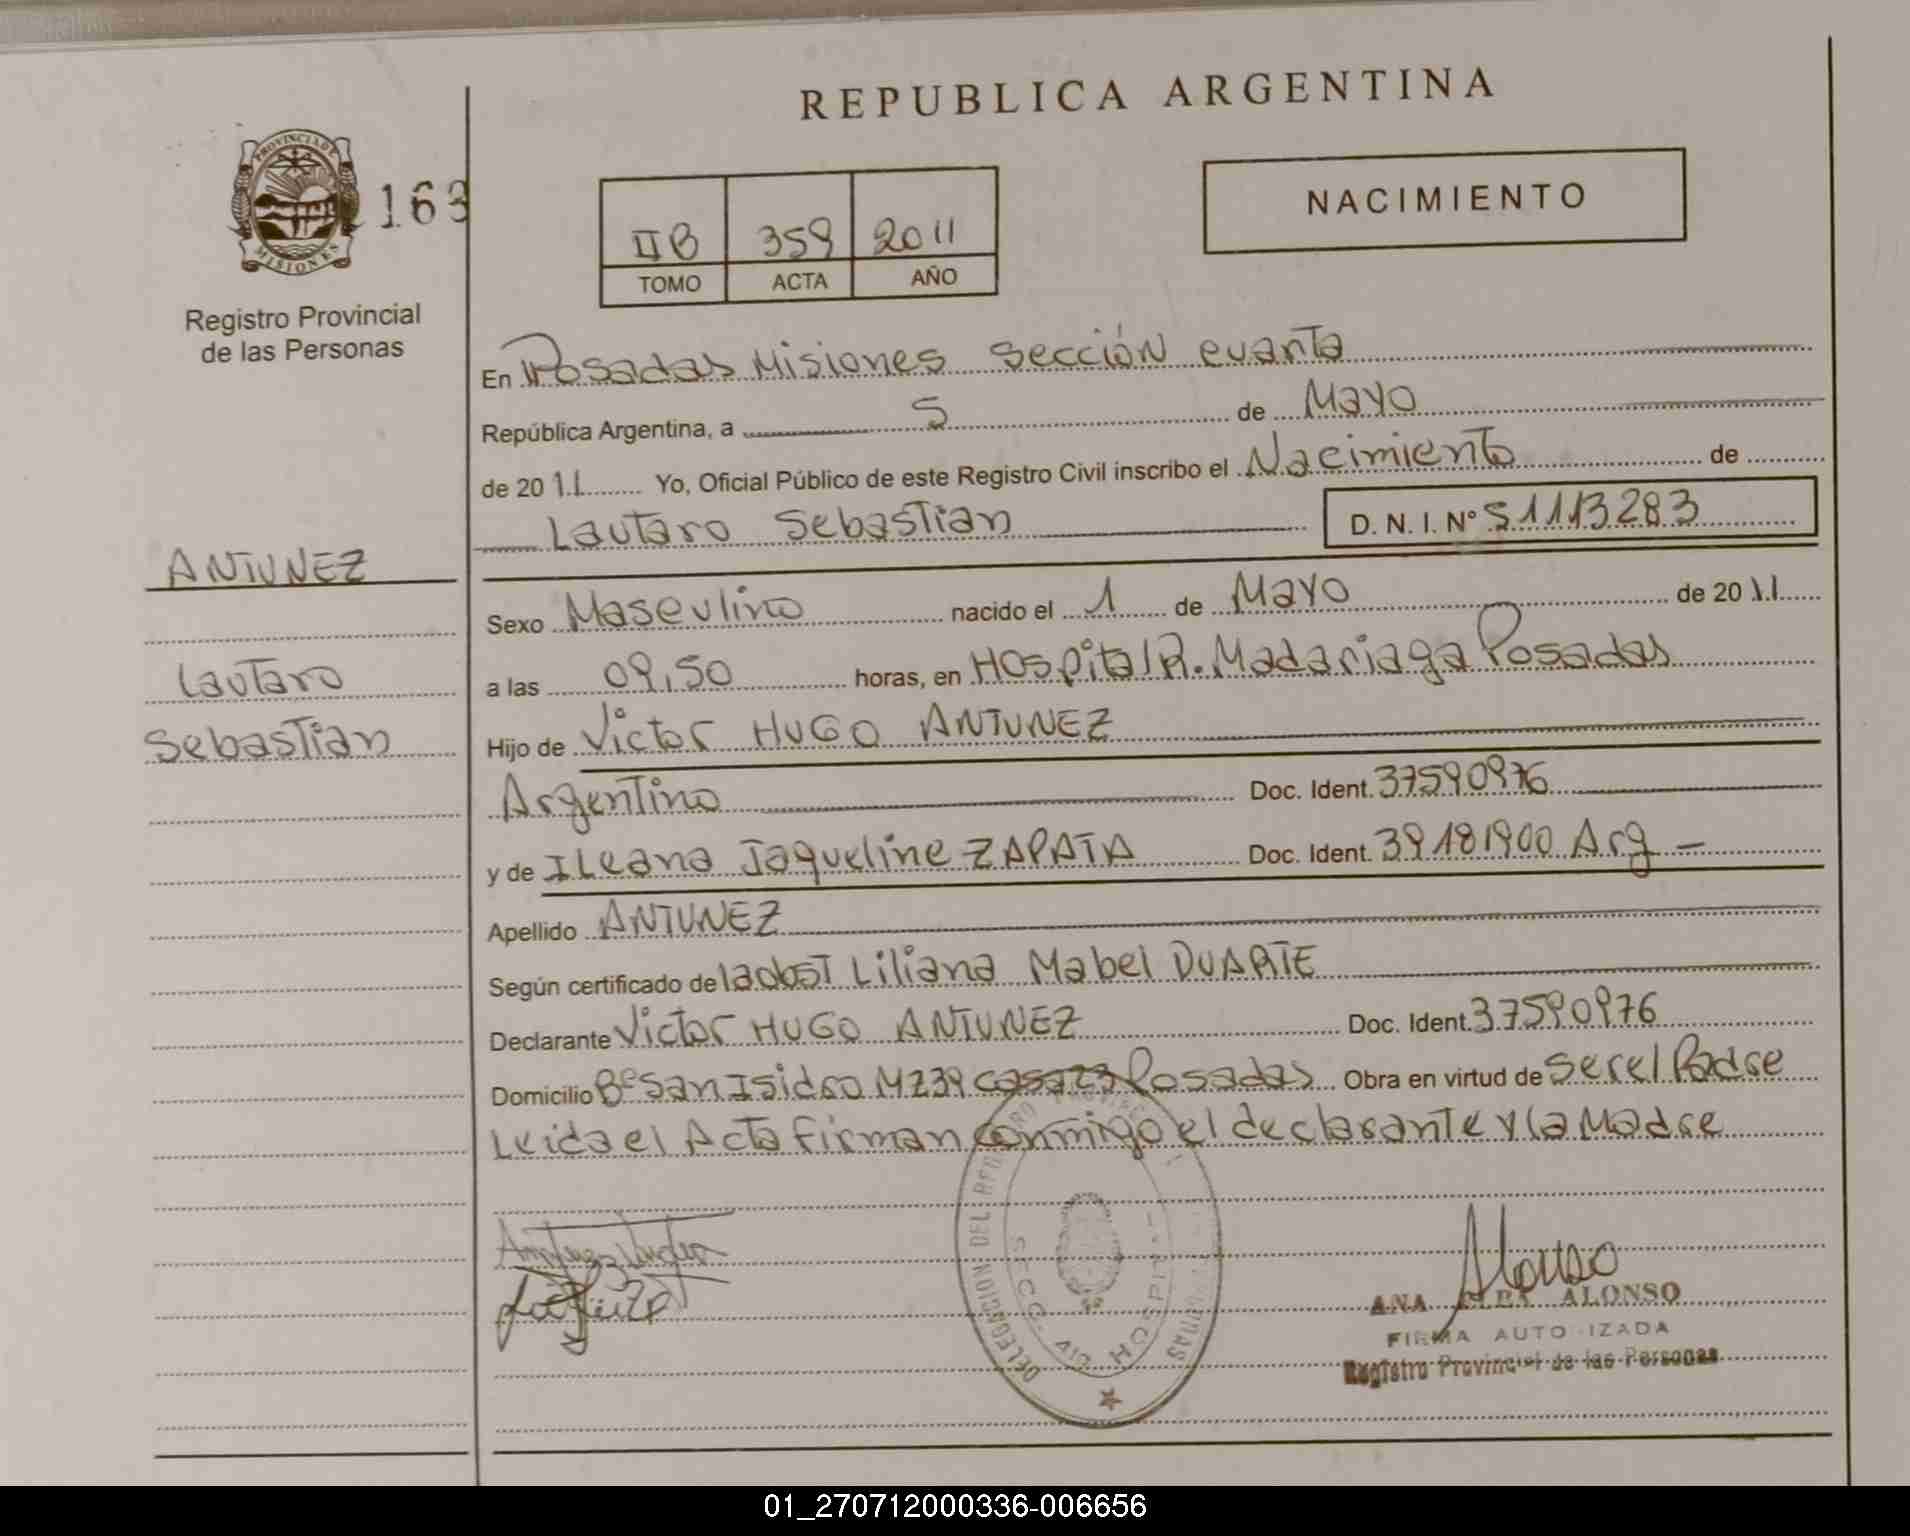 REPUBLICA ARGENTINA
PROVINCIA DE
MISIONES
163
Registro Provincial
de las Personas
IIB 359 2011
TOMO ACTA AÑO
NACIMIENTO
En Posadas Misiones sección cuarta
República Argentina, a 5 de Mayo
de 2011 Yo, Oficial Público de este Registro Civil inscribo el Nacimiento de
Lautaro Sebastian D. N. I. Nº 51113283
ANTUNEZ
Lautaro
Sebastian
Sexo Masculino nacido el 1 de Mayo de 2011
a las 09,50 horas, en Hospital R. Madariaga Posadas
Hijo de Victor HUGO ANTUNEZ
Argentino Doc. Ident. 37590976
y de ILeana Jaqueline ZAPATA Doc. Ident. 39181900 Arg -
Apellido ANTUNEZ
Según certificado de la obst Liliana Mabel DUARTE
Declarante Victor HUGO ANTUNEZ Doc. Ident. 37590976
Domicilio Bº San Isidro MZ39 casa 23 Posadas Obra en virtud de ser el Padre
Leida el Acta firman conmigo el declarante y la Madre
DELEGACION DEL
SECC. 4
HOSPITAL
Alonso
ANA ALONSO
FIRMA AUTO IZADA
Registro Provincial de las Personas
01_270712000336-006656